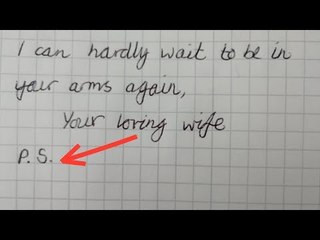 I can hardly wait to be in
your arms again,
Your loving wife
P.S.